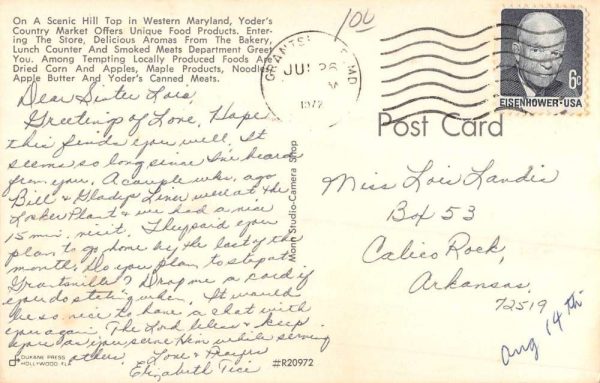 On A Scenic Hill Top in Western Maryland, Yoder's
Country Market Offers Unique Food Products. Enter-
ing The Store, Delicious Aromas From The Bakery,
Lunch Counter And Smoked Meats Department Greet
You. Among Tempting Locally Produced Foods Are
Dried Corn And Apples, Maple Products, Noodles
Apple Butter And Yoder's Canned Meats.
100
GRANTSVILLE, MD
JUN 26
1972
6c
EISENHOWER·USA
Post Card
Dear Sister Lois,
Greetings of Love, Hope
this finds you well. It
seems so long since I've heard
from you. A couple wks. ago
Bill & Gladys were at the
Locker Plant & we had a nice
15 min. visit. They said you
plan to go home by the last of the
month. Do you plan to stop at
Grantsville? Drop me a card if
you do stating when. It would
be so nice to have a chat with
you again. The Lord bless & keep
you as you serve Him while serving
others. Love & Prayers
Elizabeth Tice
Monn Studio-Camera Shop
Miss Lois Landis
Box 53
Calico Rock,
Arkansas.
72519
Aug 14th
DUKANE PRESS
HOLLYWOOD FLA
#R20972